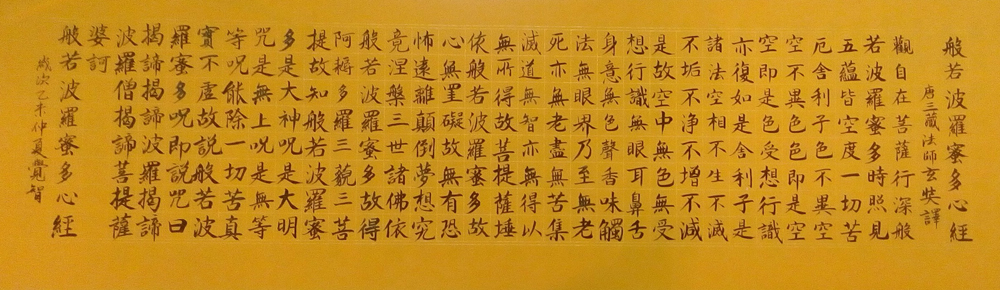 般若波羅蜜多心經
唐三藏法師玄奘譯
觀自在菩薩行深般
若波羅蜜多時照見
五蘊皆空度一切苦
厄舍利子色不異空
空不異色色即是空
空即是色受想行識
亦復如是舍利子是
諸法空相不生不滅
不垢不淨不增不減
是故空中無色無受
想行識無眼耳鼻舌
身意無色聲香味觸
法無眼界乃至無老
死亦無老盡無苦集
滅道無智亦無得以
無所得故菩提薩埵
依般若波羅蜜多故
心無罣礙故無有恐
怖遠離顛倒夢想究
竟涅槃三世諸佛依
般若波羅蜜多故得
阿耨多羅三藐三菩
提故知般若波羅蜜
多是大神咒是大明
咒是無上咒是無等
等咒能除一切苦真
實不虛故說般若波
羅蜜多咒即說咒曰
揭諦揭諦波羅揭諦
波羅僧揭諦菩提薩
婆訶
般若波羅蜜多心經
歲次乙未仲夏覺智